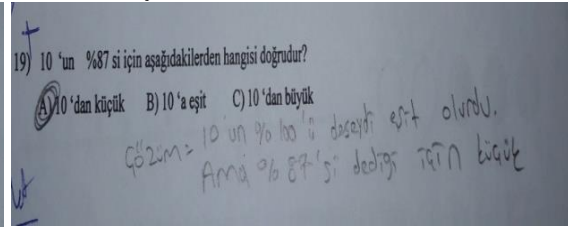 19) 10 'un %87 si için aşağıdakilerden hangisi doğrudur?
A) 10 'dan küçük B) 10 'a eşit C) 10 'dan büyük
Çözüm= 10'un % 100'ü deseydi eşit olurdu.
Ama % 87'si dediği için küçük